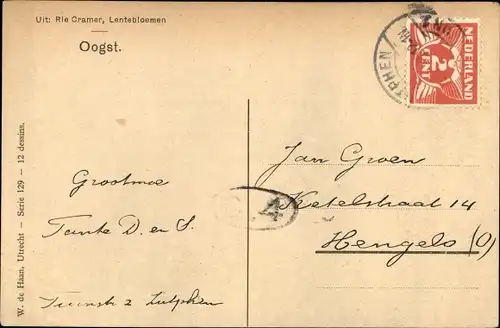 Uit: Rie Cramer, Lentebloemen
Oogst.
W. de Haan, Utrecht — Serie 129 — 12 dessins.
Grootmoe
Tante D. en S.
2 Zutphen
4
NEDERLAND
2
CENT
TPHEN
Jan Groen
Ketelstraat 14
Hengelo (O)